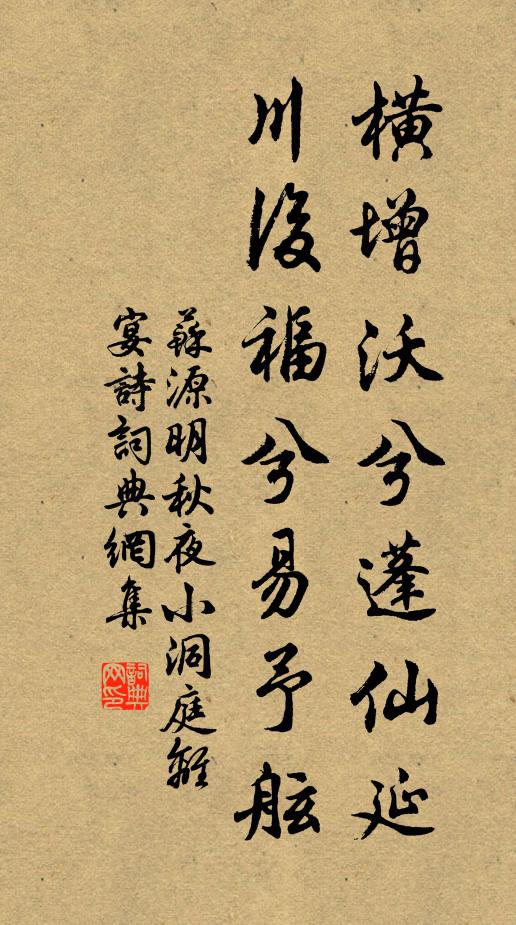 橫增沃兮蓬仙延
川後福兮易予舷
蘇源明秋夜小洞庭離
宴詩詞典網集
詞典網印